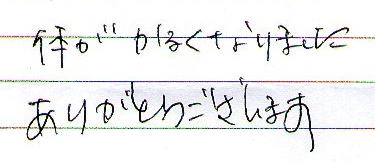 体がかるくなりました
ありがとうございます